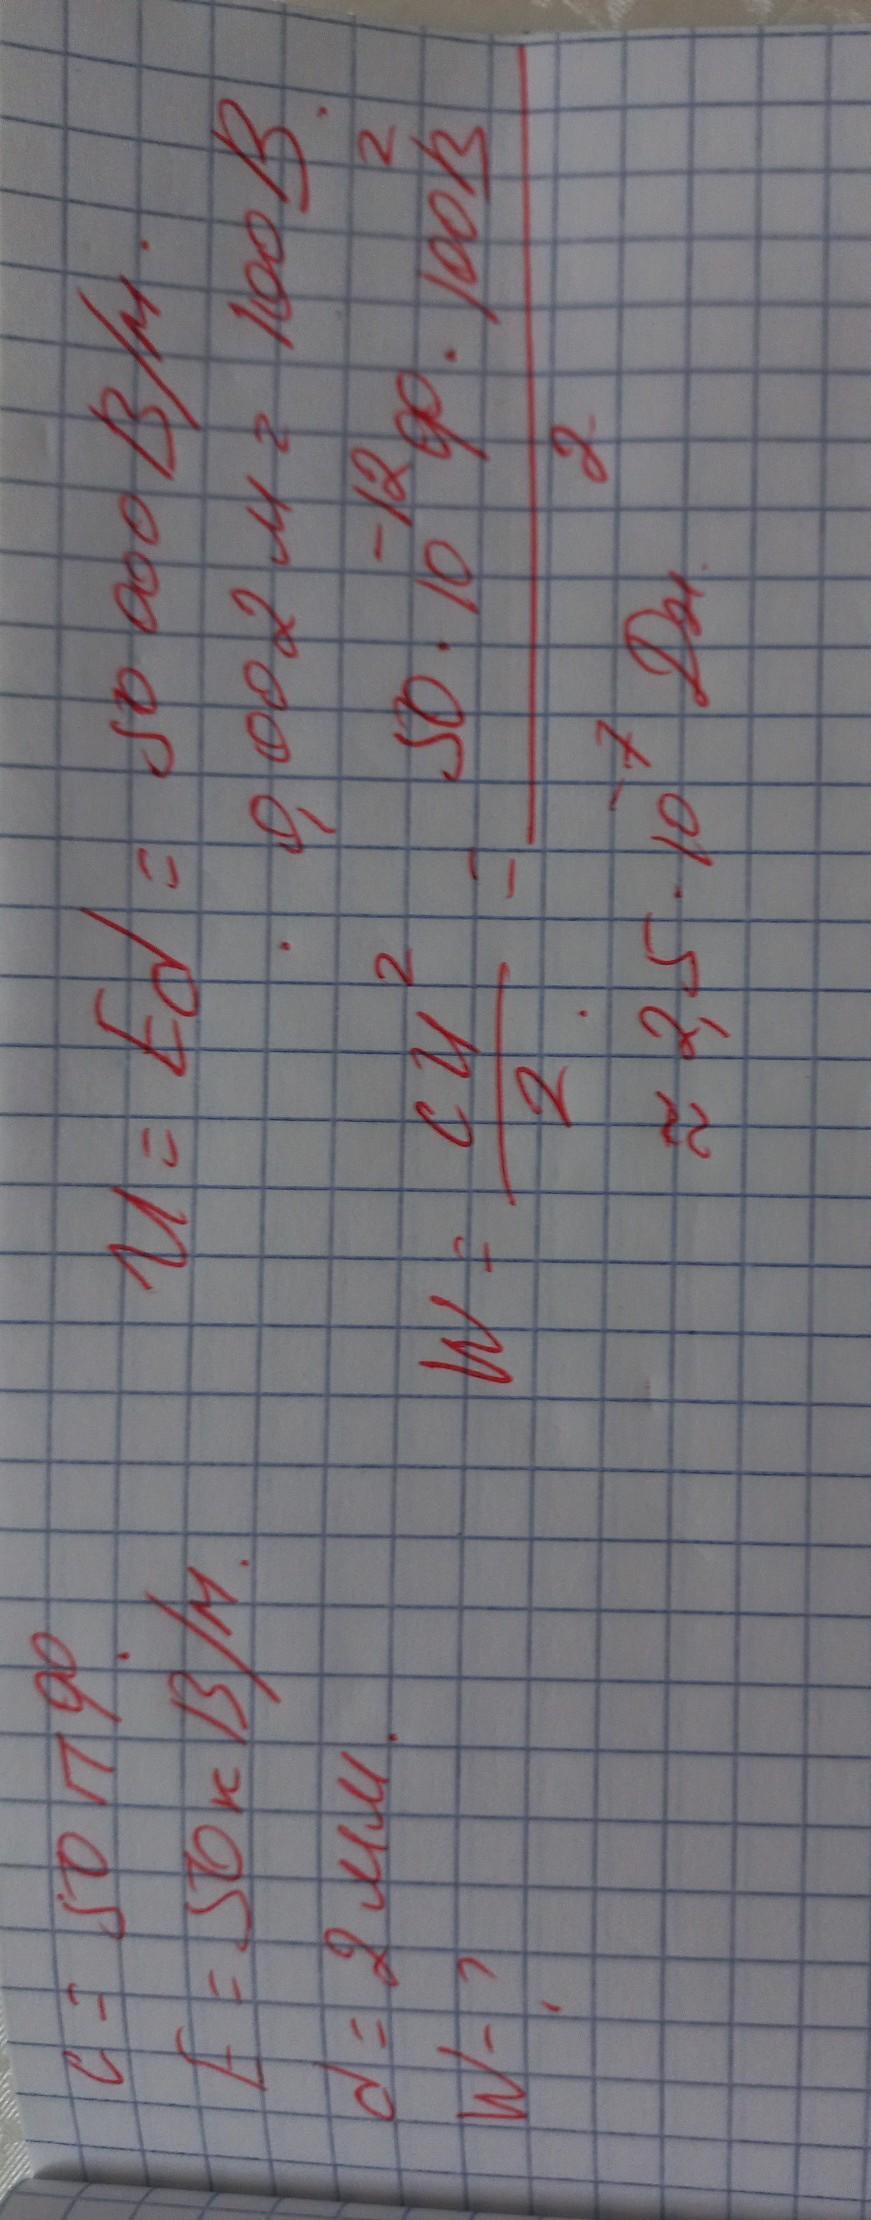 c = 50 пФ.
E = 50 кВ/м.
d = 2 мм.
W - ?
U = Ed = 50 000 В/м.
· 0,002 м = 100 В.
W = CU²/2 = 50 · 10⁻¹² Ф · 100 В²/2
≈ 2,5 · 10⁻⁷ Дж.